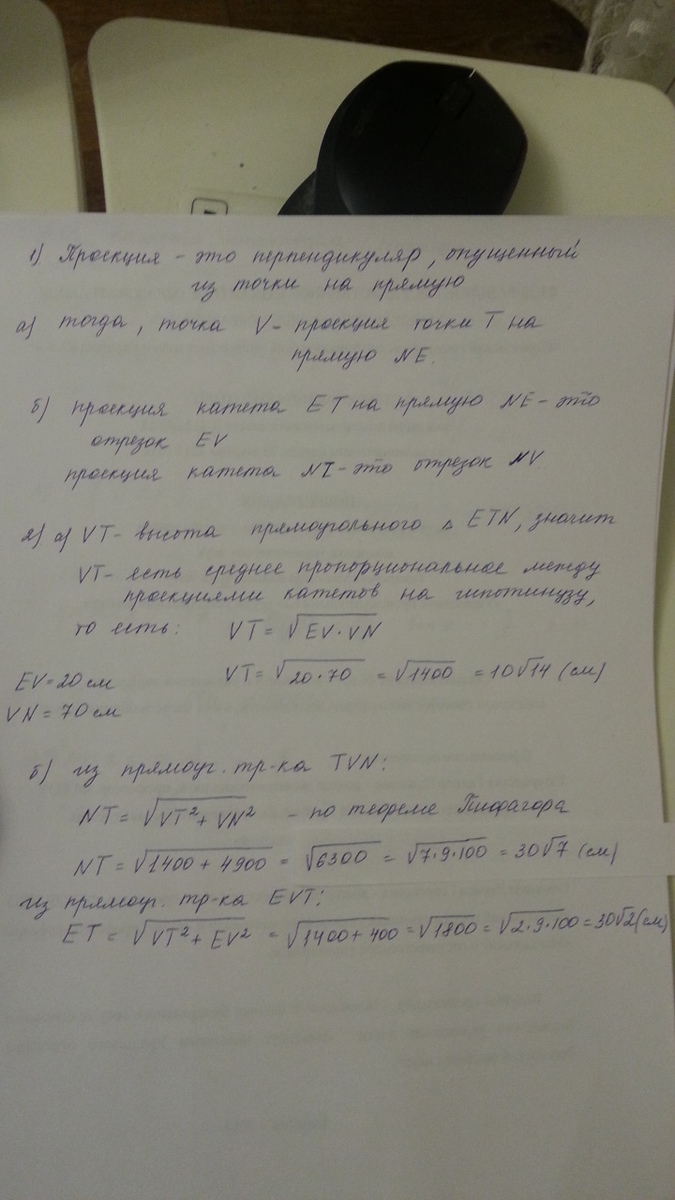 1) Проекция - это перпендикуляр, опущенный
из точки на прямую
а) тогда, точка V - проекция точки T на
прямую NE.
б) проекция катета ET на прямую NE - это
отрезок EV
проекция катета NT - это отрезок NV.
2) а) VT - высота прямоугольного △ ETN, значит
VT - есть среднее пропорциональное между
проекциями катетов на гипотинузу,
то есть: VT = √(EV · VN)
EV = 20 см VT = √(20 · 70) = √1400 = 10√14 (см)
VN = 70 см
б) из прямоуг. тр-ка TVN:
NT = √(VT² + VN²) - по теореме Пифагора
NT = √(1400 + 4900) = √6300 = √(7·9·100) = 30√7 (см)
из прямоуг. тр-ка EVT:
ET = √(VT² + EV²) = √(1400 + 400) = √1800 = √(2·9·100) = 30√2 (см)